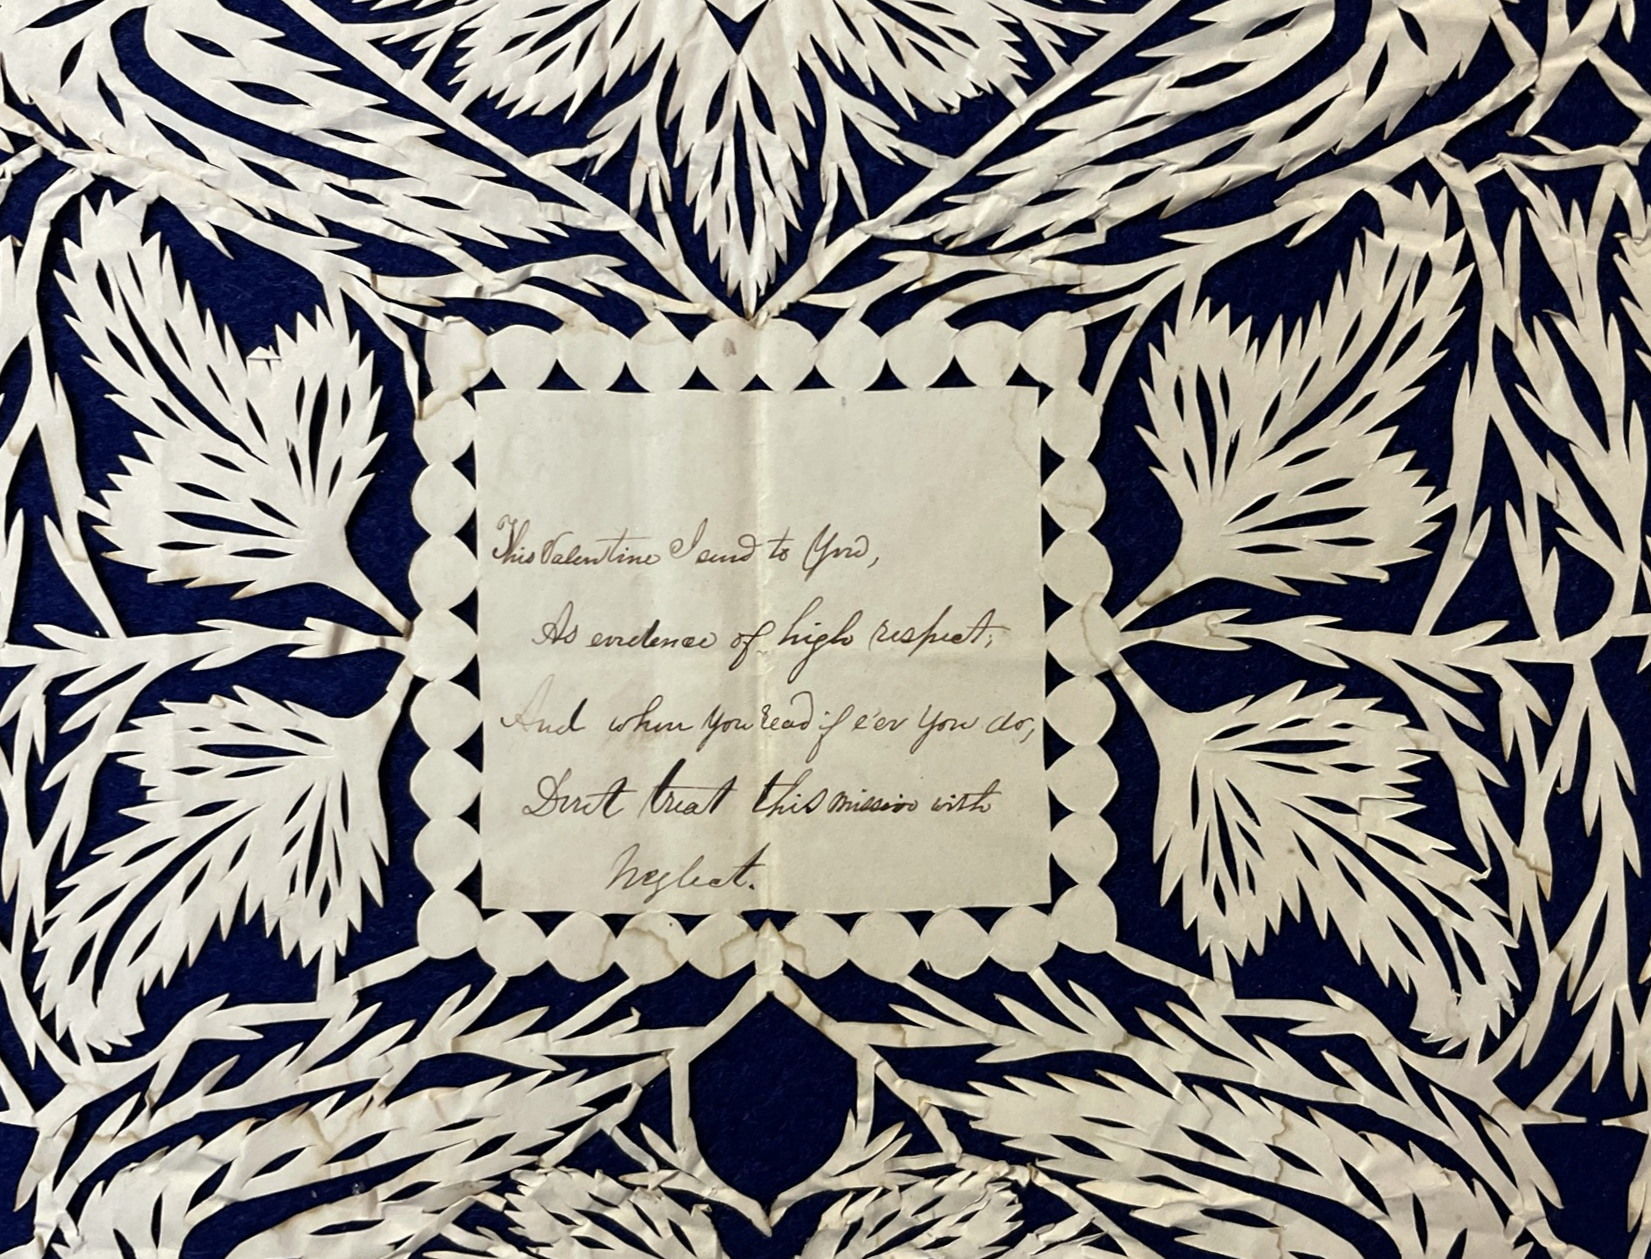 This Valentine I send to You,
As evidence of high respect;
And when You read if e'er You do,
Don't treat this missive with
Neglect.